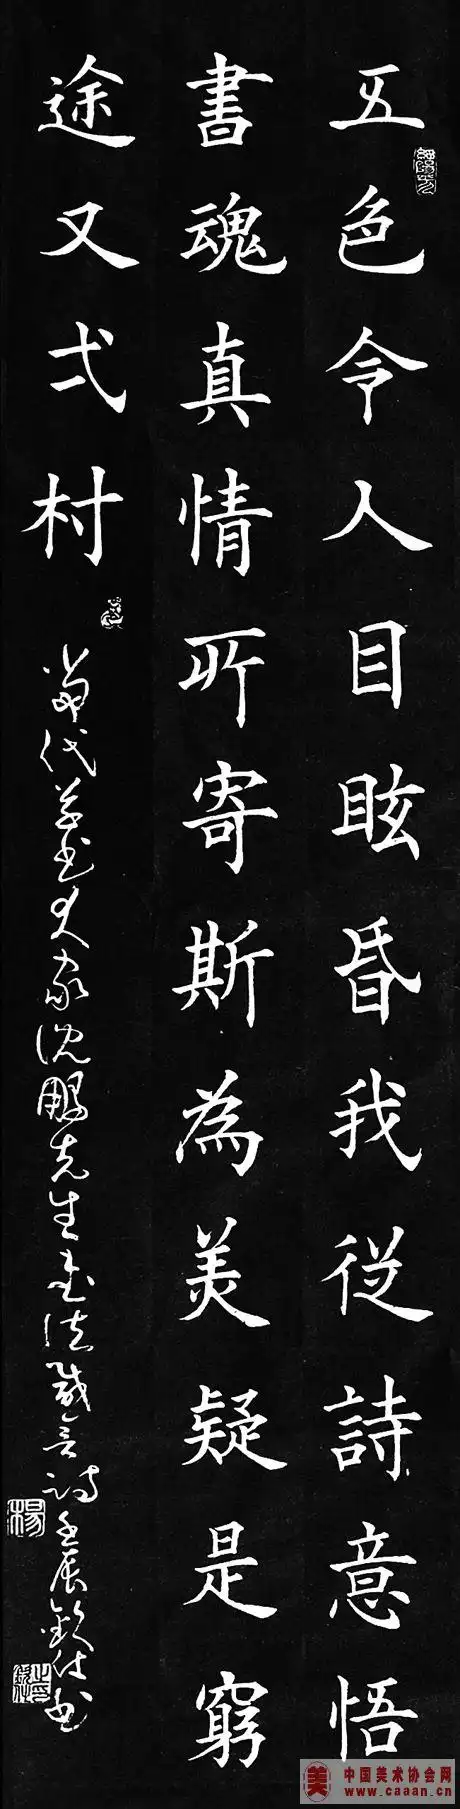 五色令人目眩昏我従詩意悟
書魂真情所寄斯為美疑是窮
途又弌村
当代草书大家沈鹏先生书法感言诗壬辰钦仕书
楊
中国美术协会网
www.caaan.cn